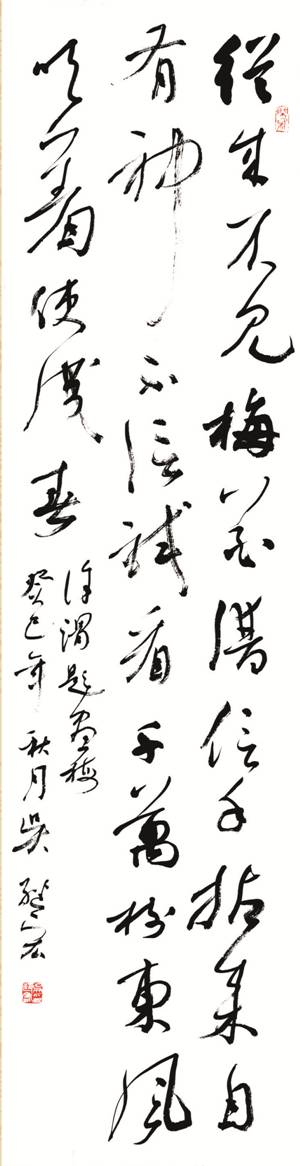 從來不見梅花譜信手拈來自
有神不信試看千萬樹東風
吹著便成春
徐渭題畫梅
癸巳年秋月吳